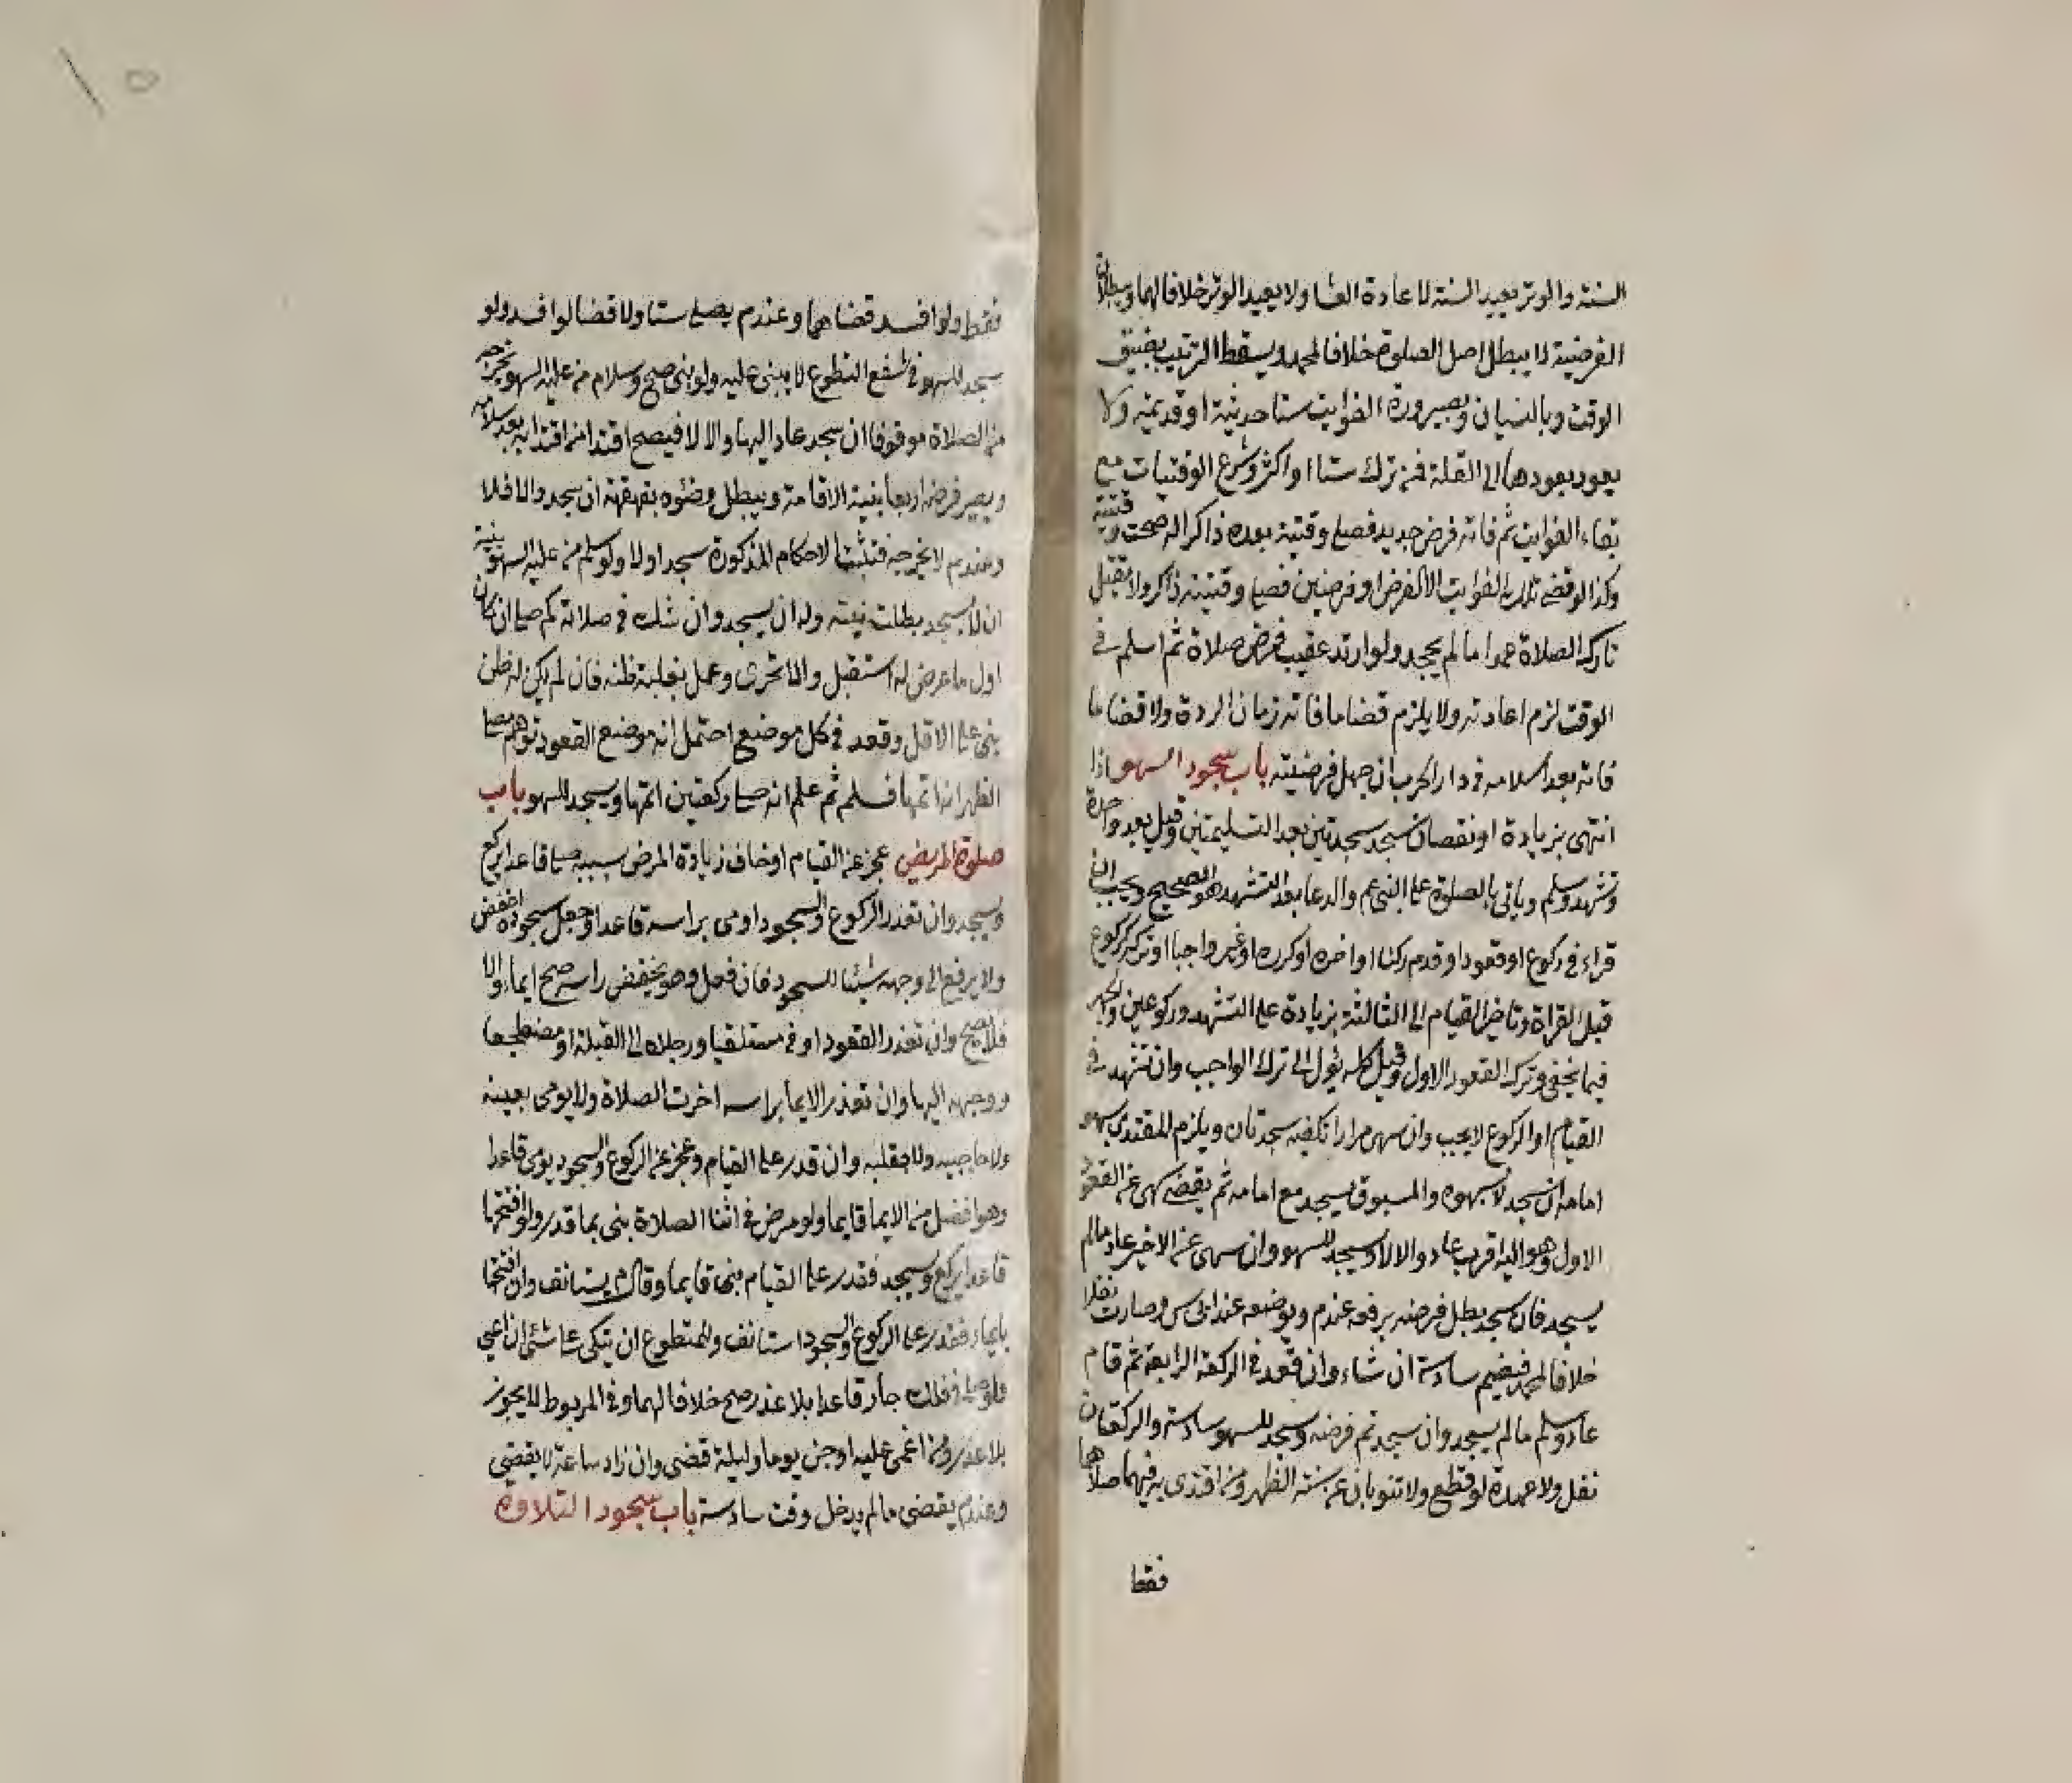 السنة والوتر يعيد السنة لا عادة العشا ولا يعيد الوتر خلافا لهما وبطلان
الفرضية لا يبطل اصل الصلوة خلافا لمحمد ويسقط الترتيب بضيق
الوقت وبالنسيان وبصيرورة الفوايت ستا حديثة او قديمة ولا
يعود بعودها الى القلة فمن ترك ستا او اكثر وشرع الوقتيات مع
بقاء الفوايت ثم فاته فرض جديد فصلى وقتية بعده ذاكرا له صحت وقتيته
وكذا لو قضى تلك الفوايت الا لفرض او فرضين فصلى وقتيته ذاكر ولا يقتل
تارك الصلاة عمدا ما لم يجحد ولو ارتد عقيب فرض صلاة ثم اسلم في
الوقت لزم اعادته ولا يلزم قضا ما فاته زمان الردة ولا قضا ما
فاته بعد اسلامه في دار الحرب ان جهل فرضيته باب سجود السهو اذا
انتهى بزيادة او نقصان سجد سجدتين بعد التسليمتين وقيل بعد واحدة
وتشهد وسلم وياتي بالصلوة على النبي عم والدعا بعد التشهد هو الصحيح ويجب ان
قراء في ركوع او قعود او قدم ركنا او اخره او كرره او غير واجبا او تركه كركوع
قبل القراة وتاخير القيام الى الثالثة بزيادة على التشهد وركوعين والجهر
فيما يخفى وترك القعود الاول وقيل كله يئول الى ترك الواجب وان تشهد في
القيام او الركوع لا يجب وان سهى مرارا تكفيه سجدتان ويلزم المقتدي بسهو
امامه ان سجد لا بسهوه والمسبوق يسجد مع امامه ثم يقضي سهى عن القعود
الاول وهو اليه اقرب عاد والا لا وسجد للسهو وان سهى عن الاخير عاد ما لم
يسجد فان سجد بطل فرضه برفعه عندم وبوضعه عند ابي س وصارت نفلا
خلافا لمحمد فيضم سادسة ان شاء وان قعد في الركعة الرابعة ثم قام
عاد وسلم ما لم يسجد وان سجد تم فرضه وسجد للسهو سادسة والركعتان
نفل ولا عهدة لو قطع ولا تنوبان عن سنة الظهر ومن اقتدى به فيهما صلاهما
فقط
فقط ولو افسد قضاهما وعندم يصلي ستا ولا قضا لو افسد ولو
سجد للسهو في شفع التطوع لا يبنى عليه ولو بنى صح وسلام من عليه السهو يخرجه
من الصلاة موقوفا ان سجد عاد اليها والا لا فيصح اقتدا من اقتدا به بعد سلامه
ويصير فرضه اربعا بنية الاقامة ويبطل وضوه بقهقهة ان سجد والا فلا
وعندم لا يخرجه فتثبت الاحكام المذكورة سجد او لا ولو سلم من عليه السهو بنية
ان لا يسجد بطلت نيته وله ان يسجد وان شك في صلاته كم صلى ان كان
اول ما عرض له استقبل والا تحرى وعمل بغلبة ظنه فان لم يكن له ظن
بنى على الاقل وقعد في كل موضع احتمل انه موضع القعود توهم مصلي
الظهر انه اتمها فسلم ثم علم انه صلى ركعتين اتمها ويسجد للسهو باب
صلوة المريض عجز عن القيام او خاف زيادة المرض بسببه صلى قاعدا يركع
ويسجد وان تعذر الركوع والسجود اومى براسه قاعدا وجعل سجوده اخفض
ولا يرفع الى وجهه شيئا للسجود فان فعل وهو يخفض راسه صح ايماء والا
فلا يصح وان تعذر القعود اومى مستلقيا ورجلاه الى القبلة او مضطجعا
ووجهه اليها وان تعذر الايما براسه اخرت الصلاة ولا يومى بعينه
ولا حاجبيه ولا بقلبه وان قدر على القيام وعجز عن الركوع والسجود يومى قاعدا
وهو افضل من الايما قايما ولو مرض في اثنا الصلاة بنى بما قدر ولو افتتحها
قاعدا يركع ويسجد فقدر على القيام بنى قايما وقال م يستانف وان افتتحها
بايماء فقدر على الركوع والسجود استانف وللمتطوع ان يتكى على شئ ان اعيى
ولو صلى في فلك جار قاعدا بلا عذر صح خلافا لهما وفي المربوط لا يجوز
بلا عذر ومن اغمى عليه او جن يوما وليلة قضى وان زاد ساعة لا يقضي
وعندم يقضى ما لم يدخل وقت سادسة باب سجود التلاوة